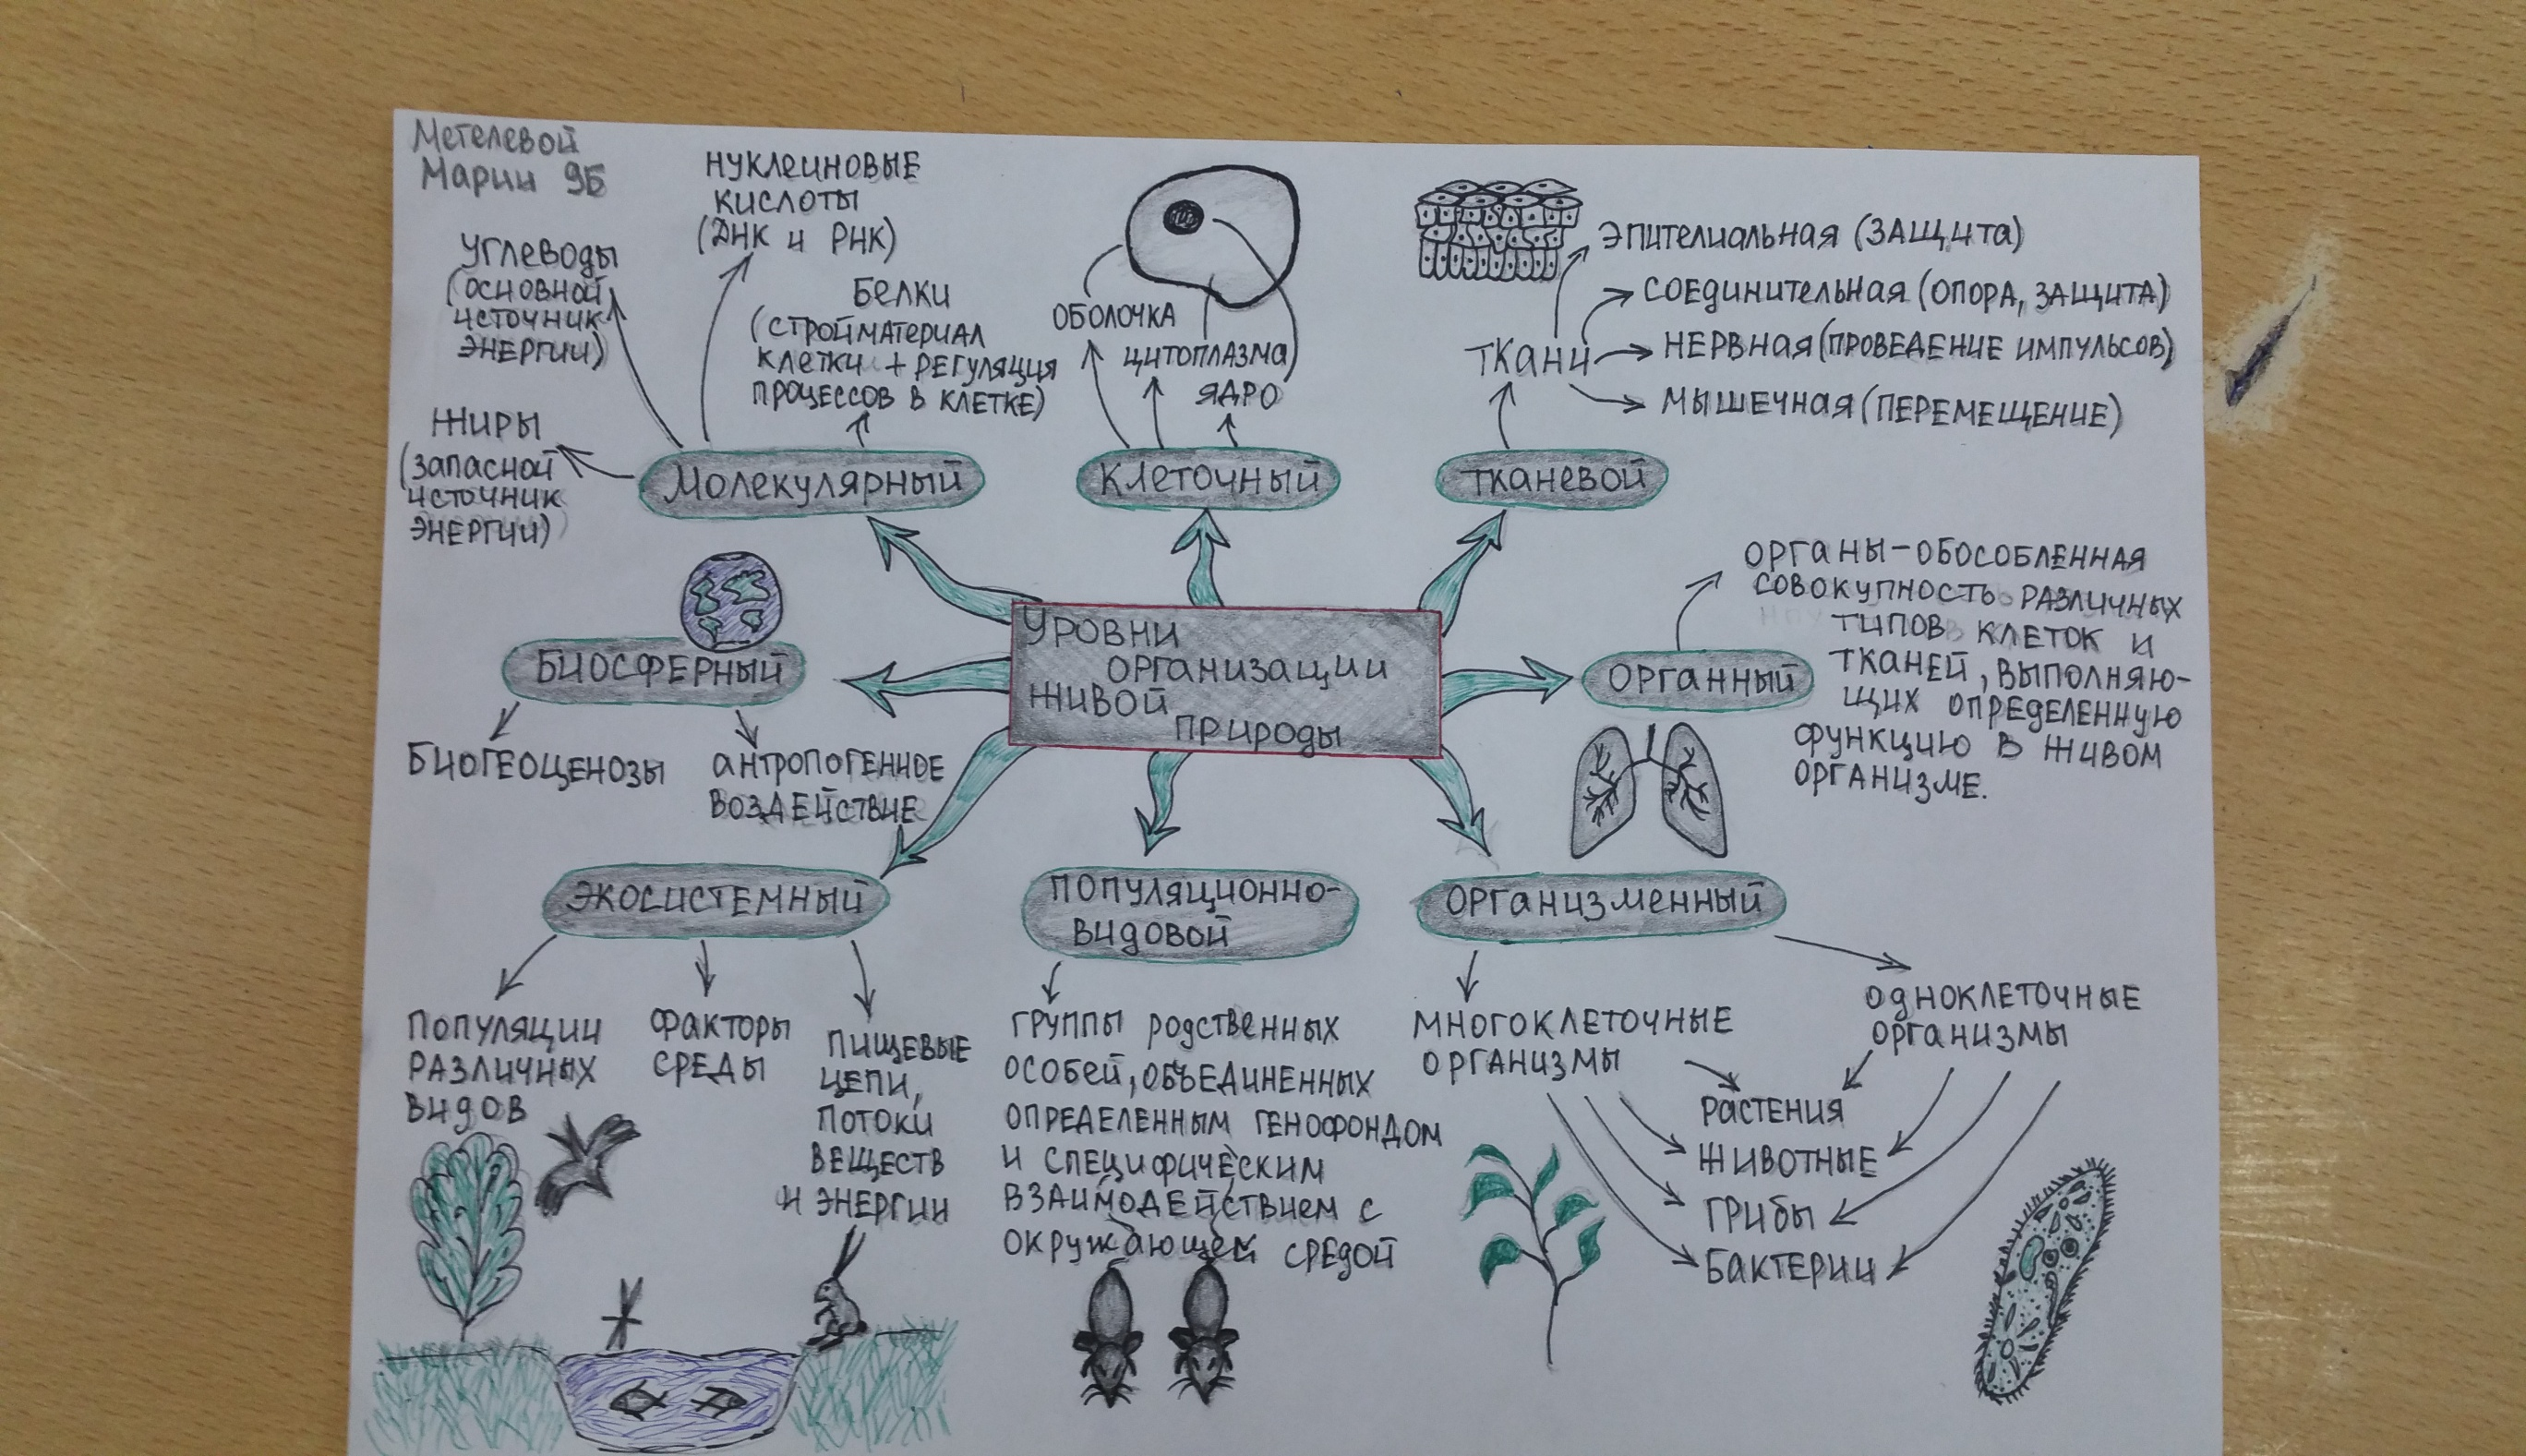 Метелевой
Марии 9Б
НУКЛЕИНОВЫЕ
КИСЛОТЫ
(ДНК и РНК)
УГЛЕВОДЫ
(ОСНОВНОЙ
ИСТОЧНИК
ЭНЕРГИИ)
БЕЛКИ
(СТРОЙМАТЕРИАЛ
КЛЕТКИ + РЕГУЛЯЦИЯ
ПРОЦЕССОВ В КЛЕТКЕ)
ЖИРЫ
(ЗАПАСНОЙ
ИСТОЧНИК
ЭНЕРГИИ)
МОЛЕКУЛЯРНЫЙ
ОБОЛОЧКА
ЦИТОПЛАЗМА
ЯДРО
КЛЕТОЧНЫЙ
ЭПИТЕЛИАЛЬНАЯ (ЗАЩИТА)
СОЕДИНИТЕЛЬНАЯ (ОПОРА, ЗАЩИТА)
ТКАНИ
НЕРВНАЯ (ПРОВЕДЕНИЕ ИМПУЛЬСОВ)
МЫШЕЧНАЯ (ПЕРЕМЕЩЕНИЕ)
ТКАНЕВОЙ
УРОВНИ
ОРГАНИЗАЦИИ
ЖИВОЙ
ПРИРОДЫ
ОРГАННЫЙ
ОРГАНЫ-ОБОСОБЛЕННАЯ
СОВОКУПНОСТЬ РАЗЛИЧНЫХ
ТИПОВ КЛЕТОК И
ТКАНЕЙ, ВЫПОЛНЯЮ-
ЩИХ ОПРЕДЕЛЕННУЮ
ФУНКЦИЮ В ЖИВОМ
ОРГАНИЗМЕ.
БИОСФЕРНЫЙ
БИОГЕОЦЕНОЗЫ
АНТРОПОГЕННОЕ
ВОЗДЕЙСТВИЕ
ЭКОСИСТЕМНЫЙ
ПОПУЛЯЦИИ
РАЗЛИЧНЫХ
ВИДОВ
ФАКТОРЫ
СРЕДЫ
ПИЩЕВЫЕ
ЦЕПИ,
ПОТОКИ
ВЕЩЕСТВ
И ЭНЕРГИИ
ПОПУЛЯЦИОННО-
ВИДОВОЙ
ГРУППЫ РОДСТВЕННЫХ
ОСОБЕЙ, ОБЪЕДИНЕННЫХ
ОПРЕДЕЛЕННЫМ ГЕНОФОНДОМ
И СПЕЦИФИЧЕСКИМ
ВЗАИМОДЕЙСТВИЕМ С
ОКРУЖАЮЩЕЙ СРЕДОЙ
ОРГАНИЗМЕННЫЙ
МНОГОКЛЕТОЧНЫЕ
ОРГАНИЗМЫ
ОДНОКЛЕТОЧНЫЕ
ОРГАНИЗМЫ
РАСТЕНИЯ
ЖИВОТНЫЕ
ГРИБЫ
БАКТЕРИИ